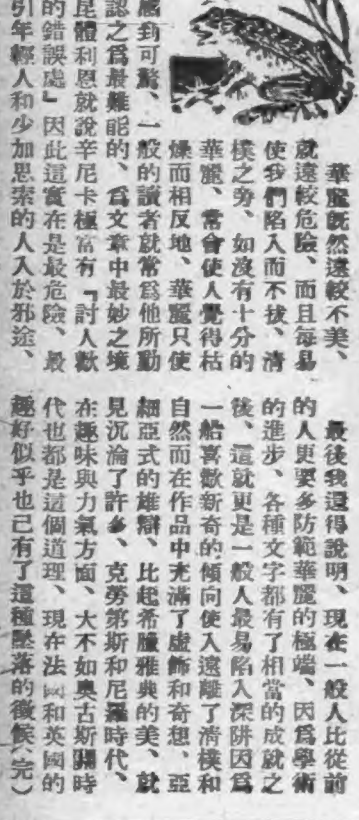 華麗既然遠較不美、
就遠較危險、而且每易
使我們陷入而不拔、清
樸之勞、如沒有十分的
華麗、常會使人覺得枯
燥而相反地、華麗只使
感到可驚、一般的讀者就常爲他所動
認之爲最難能的、爲文章中最妙之境
昆體利恩就說辛尼卡極富有『討人歡
的錯誤處』因此這實在是最危險、最
引年輕人和少加思索的人入於邪途、
最後我還得說明、現在一般人比從前
的人更要多防範華麗的極端、因爲學術
的進步、各種文字都有了相當的成就之
後、這就更是一般人最易陷入深阱因爲
一船喜歡新奇的傾向使入遠離了清樸和
自然而在作品中充滿了虛飾和奇想、亞
細亞式的雄辯、比起希臘雅典的美、就
見沉淪了許多、克勞第斯和尼羅時代、
在趣味與力氣方面、大不如奧古斯關時
代也都是這個道理、現在法國和英國的
趣好似乎也已有了這種墜落的徵候（完）